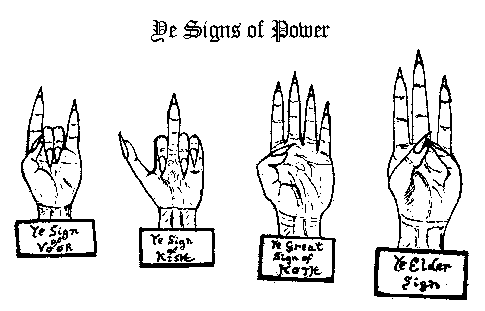 Ye Signs of Power
Ye Sign
of
VOOR
Ye Sign
of
KISH
Ye Great
Sign of
KOTH
Ye Elder
Sign